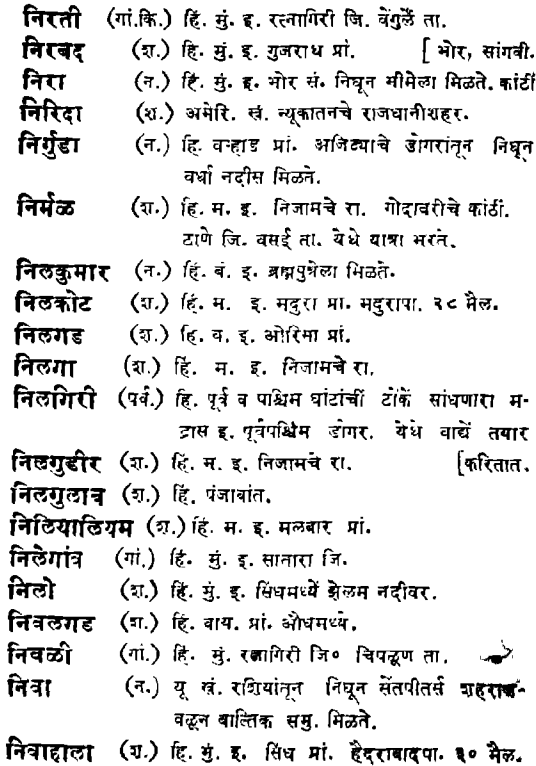 निरती (गां.कि.) हिं. मुं. इ. रत्नागिरी जि. वेंगुर्लें ता.
निरबद (श.) हि. मुं. इ. गुजराथ प्रां. [ भोर, सांगवी.
निरा (न.) हिं. मुं. इ. भोर सं. निघून भीमेला मिळते. कांठीं
निरिदा (श.) अमेरि. खं. न्यूकातनचे राजधानीशहर.
निर्गुडा (न.) हि. वऱ्हाड प्रां. अजिंट्याचे डोंगरांतून निघून
वर्धा नदीस मिळते.
निर्मळ (श.) हिं. म. इ. निजामचे रा. गोदावरीचे कांठीं.
ठाणे जि. वसई ता. येथे यात्रा भरते.
निलकुमार (न.) हिं. बं. इ. ब्राह्मपुत्रेला मिळते.
निलकोट (श.) हिं. म. इ. मदुरा प्रा. मदुरापा. २८ मैल.
निलगड (श.) हिं. व. इ. ओरिसा प्रां.
निलगा (श.) हिं. म. इ. निजामचे रा.
निलगिरी (पर्व.) हि. पूर्व व पाश्चिम घांटांचीं टोंकें सांधणारा म-
द्रास इ. पूर्वपश्चिम डोंगर. येथे वाद्यें तयार
निलगुडीर (श.) हिं. म. इ. निजामचे रा. [करितात.
निलगुलाव (श.) हिं. पंजाबांत.
निलियालियम (श.) हिं. म. इ. मलबार प्रां.
निलेगांव (गां.) हिं. मुं. इ. सातारा जि.
निलो (श.) हिं. मुं. इ. सिंधमध्यें झेलम नदीवर.
निवलगड (श.) हिं. वाय. प्रां. औधमध्ये.
निवळी (गां.) हिं. मुं. रत्नागिरी जि० चिपळूण ता.
निवा (न.) यू खं. रशियांतून निघून सेंतपीतर्स शहरा-
वळून बाल्तिक समु. मिळते.
निवाहाला (श.) हि. मुं. इ. सिंध प्रां. हैदराबादपा. ३० मैल.